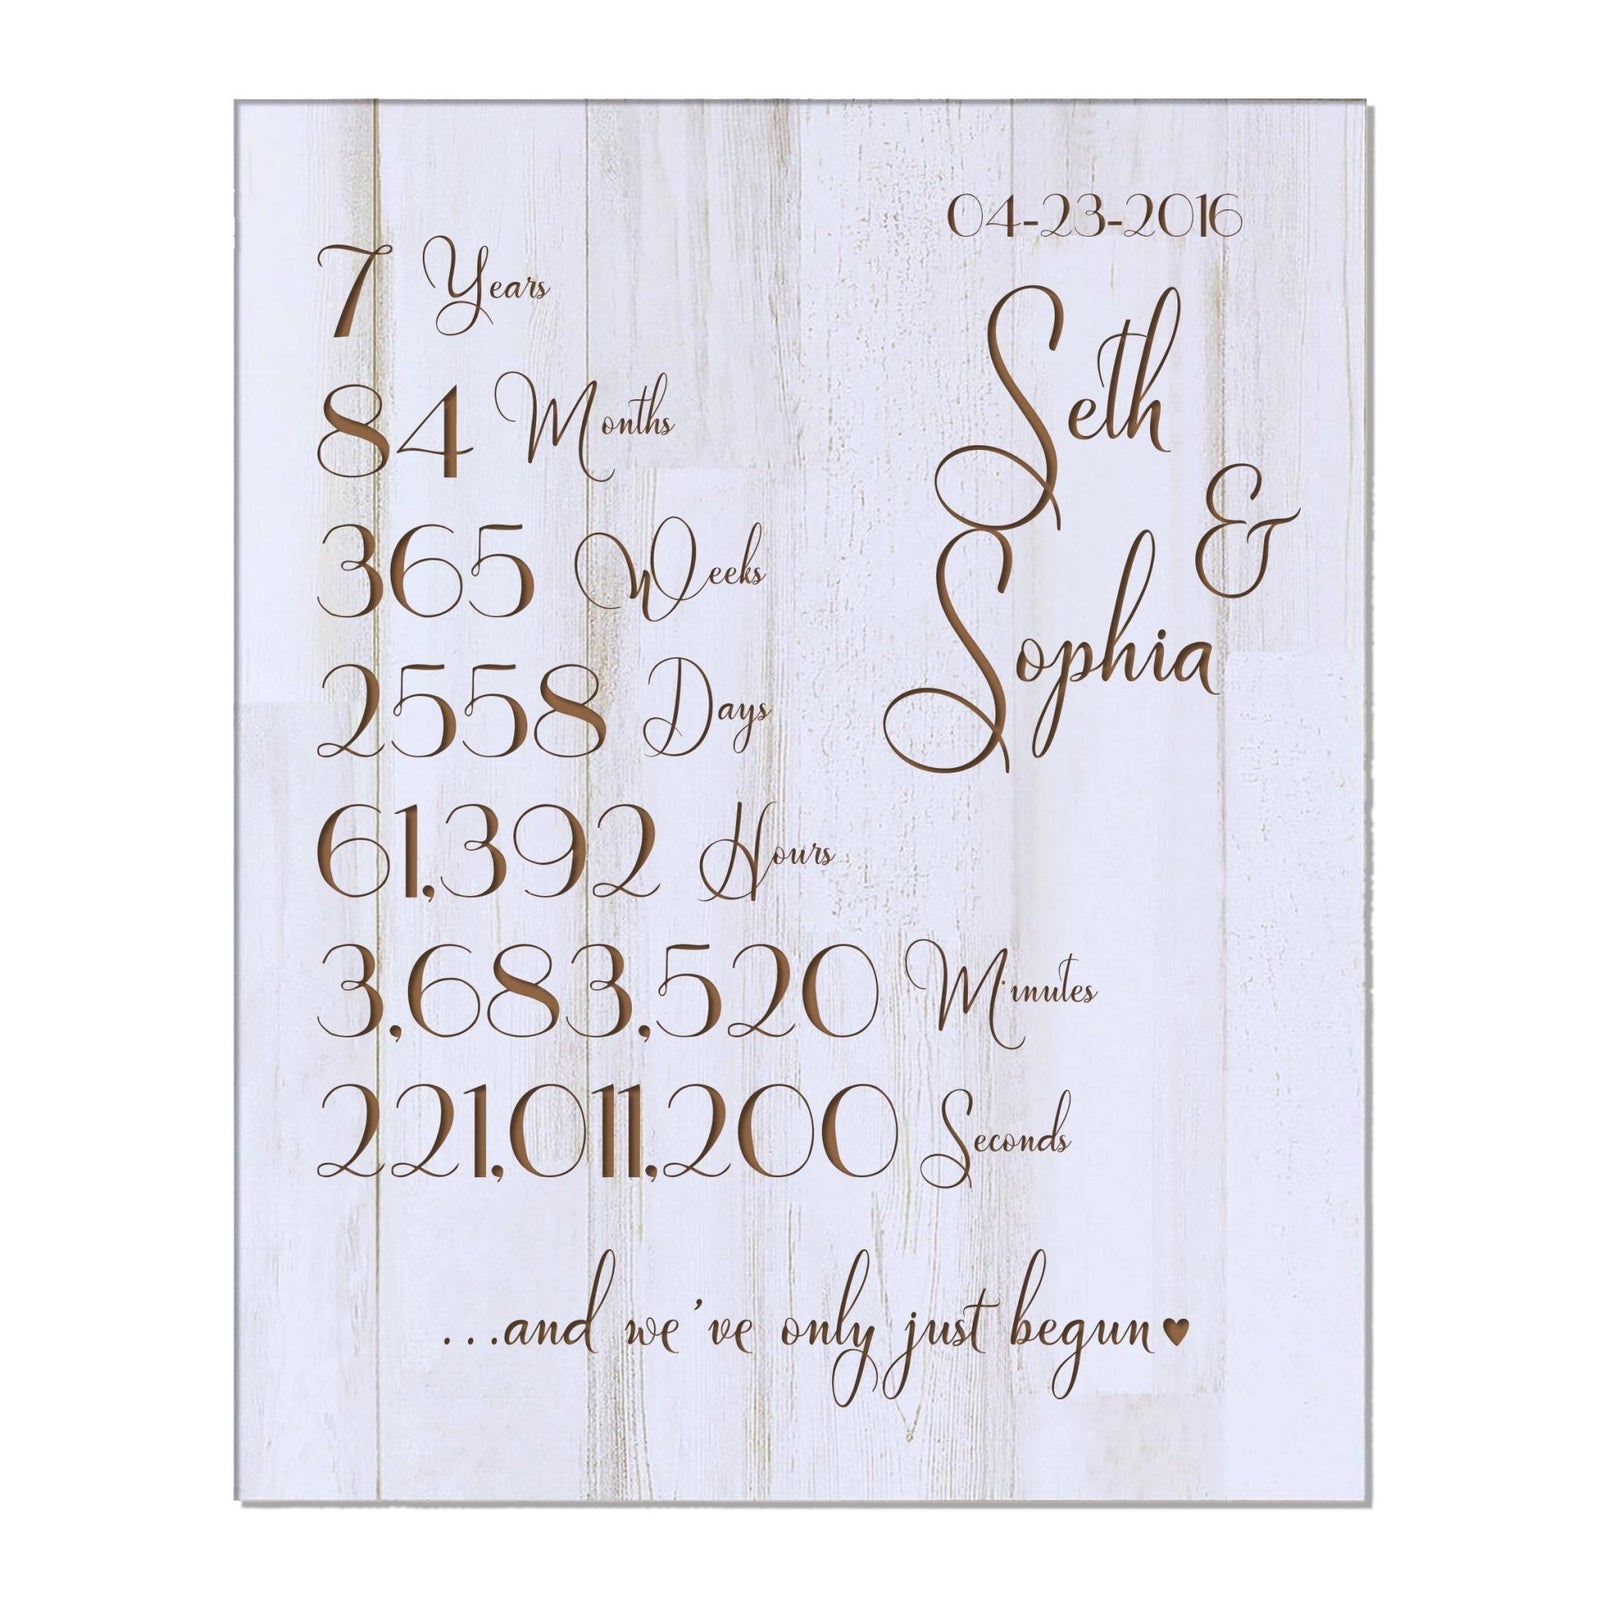 04-23-2016
Seth
&
Sophia
7 Years
84 Months
365 Weeks
2558 Days
61,392 Hours
3,683,520 Minutes
221,011,200 Seconds
...and we've only just begun♥